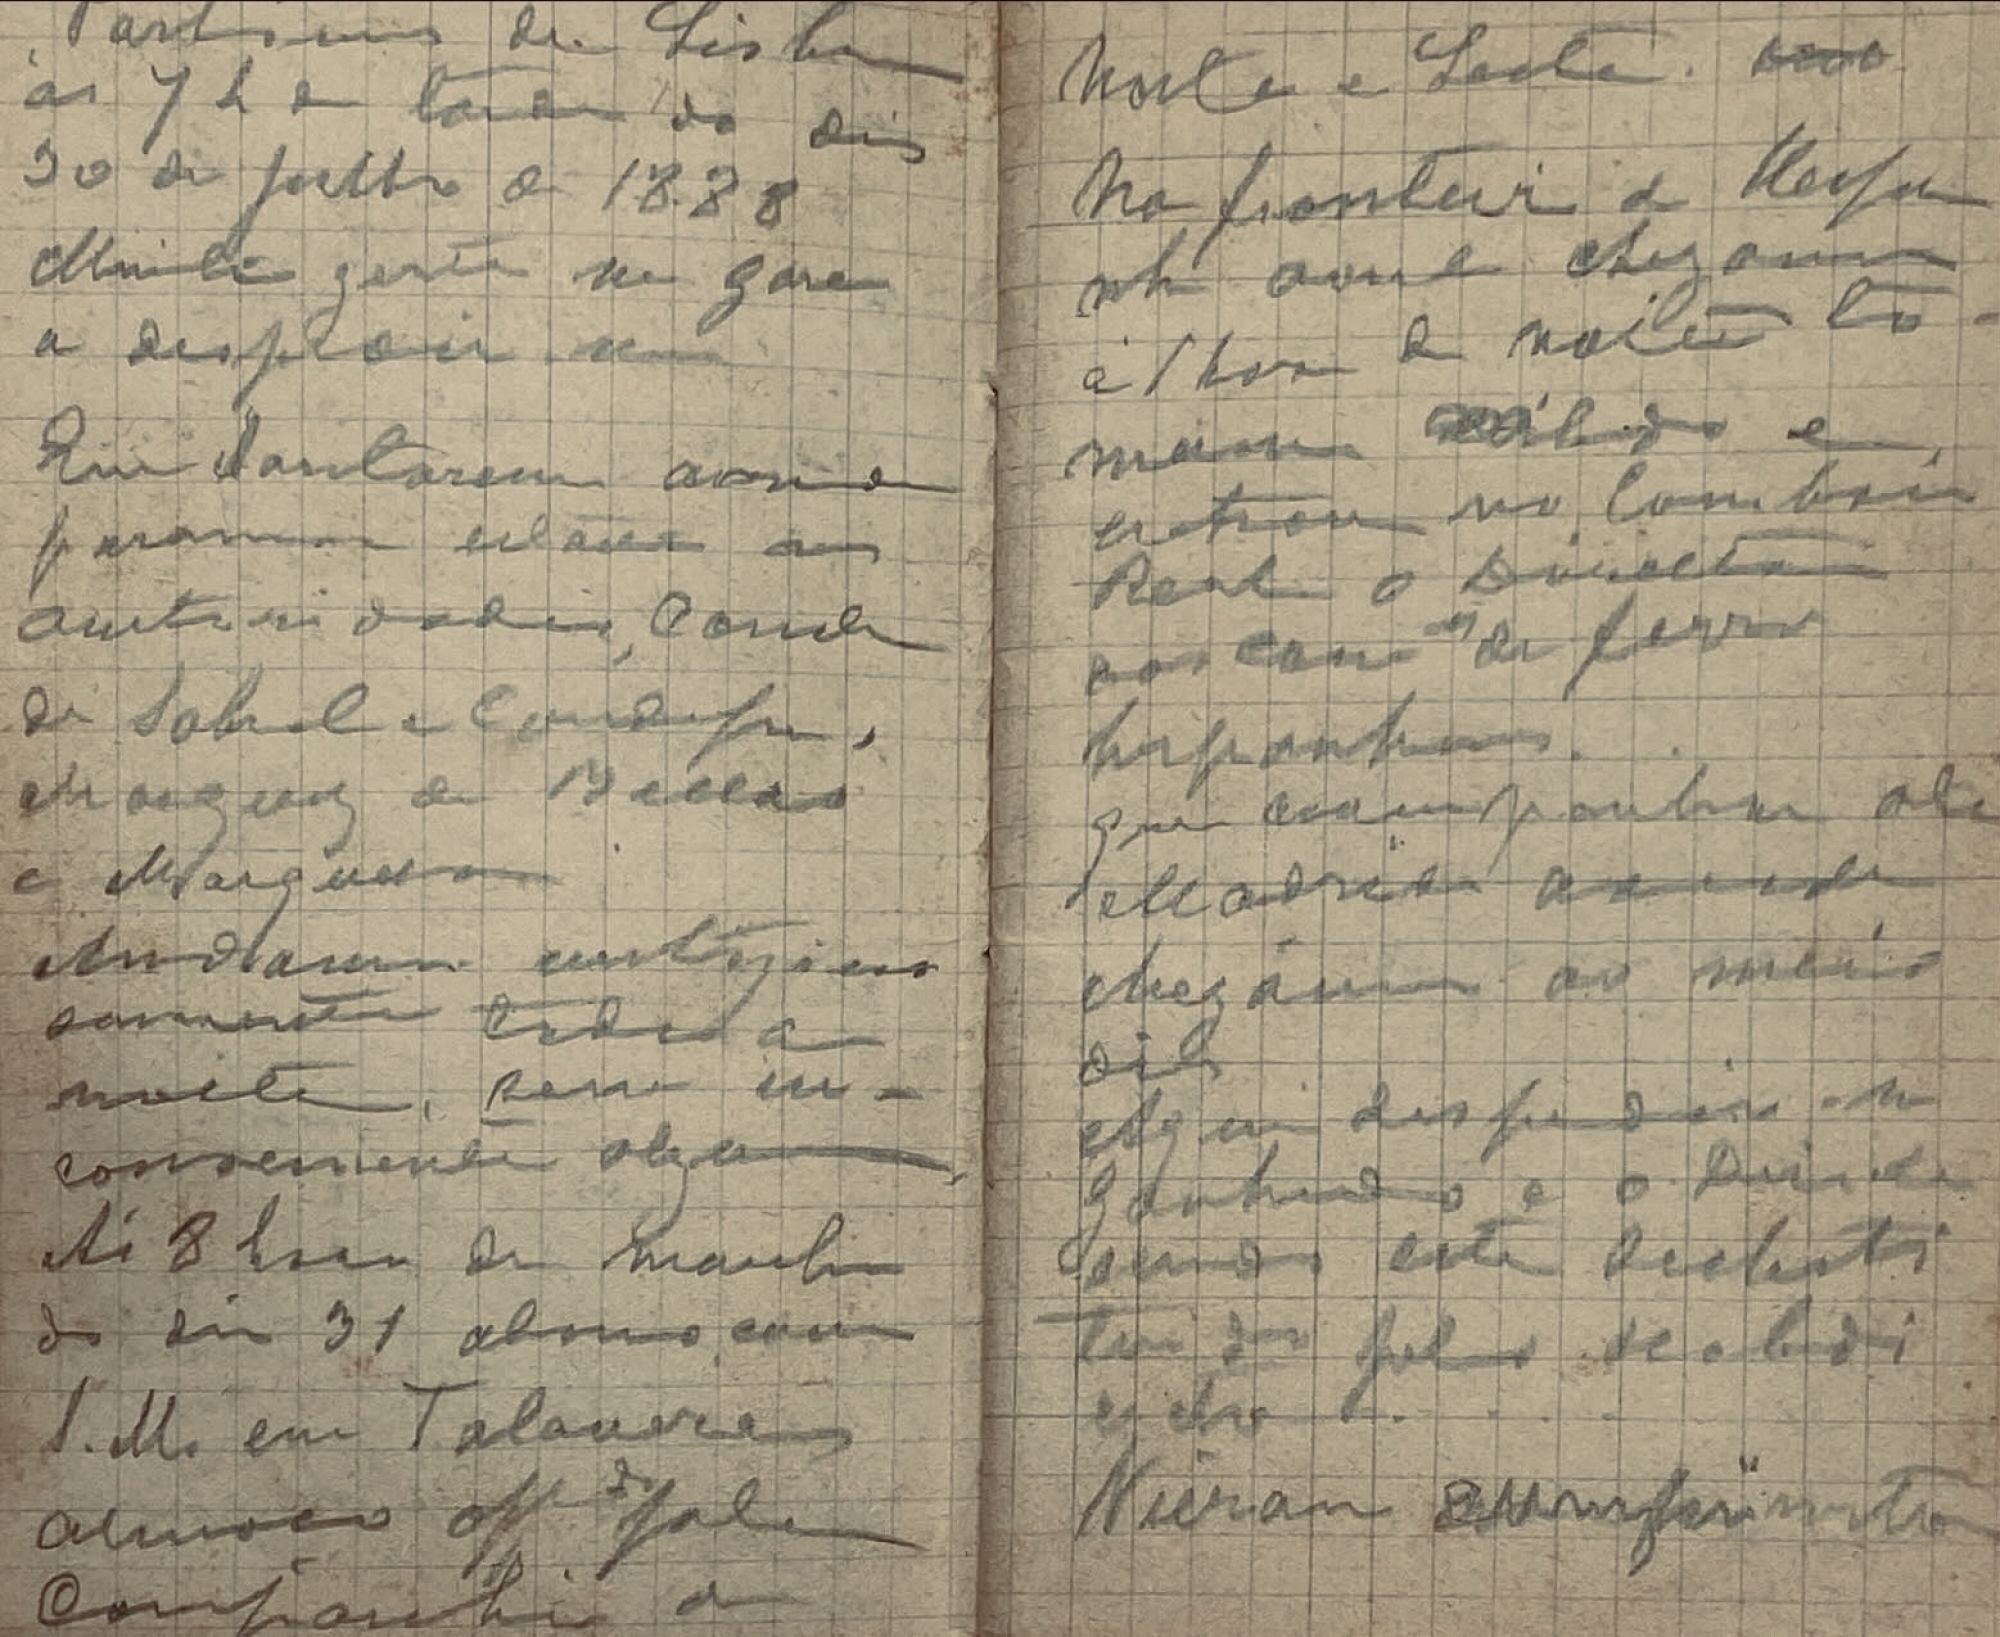 Partimos de Lisboa
ás 7 h da tarde do dia
30 de julho de 1888
Muita gente na gare
a despedir-se
Em Santarem aonde
paramos estavam as
autoridades, Conde
de Sobral e Condessa,
Marquez de Bellas
e Marqueza
Andamos vertigino
samente toda a
noite, sem in-
conveniente algum.
Ás 8 horas da manhã
do dia 31 almoçam
S. M. em Talavera
almoço off.do pela
Companhia do
Norte e Leste.
Na fronteira de Hespa
nha aonde chegamos
á 1 hora da noite to-
mamos e
entrou no Comboio
Real o Director
dos cam.os de ferro
hespanhoes.
que acompanhou até
Madrid aonde
chegámos ao meio
dia
Aqui despediu-se
e o
sendo este substi
tuido pelo
e
Vieram cumprimentar